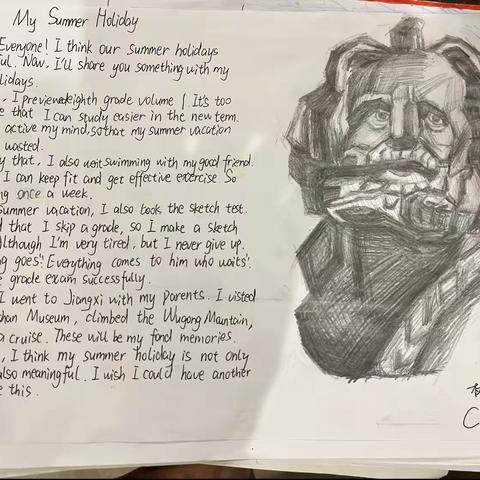 My Summer Holiday
Everyone! I think our summer holidays
ful. Now, I'll share you something with my
lidays.
, I preview eighth grade volume 1. It's too
e that I can study easier in the new term.
active my mind, so that my summer vacation
wasted.
y that, I also went swimming with my good friend.
I can keep fit and get effective exercise. So
ng once a week.
summer vacation, I also took the sketch test.
d that I skip a grade, so I make a sketch
lthough I'm very tired, but I never give up.
ng goes "Everything comes to him who waits".
e grade exam successfully.
I went to Jiangxi with my parents. I visted
shan Museum, climbed the Wugong Mountain,
a cruise. These will be my fond memories.
, I think my summer holiday is not only
also meaningful. I wish I could have another
e this.
C